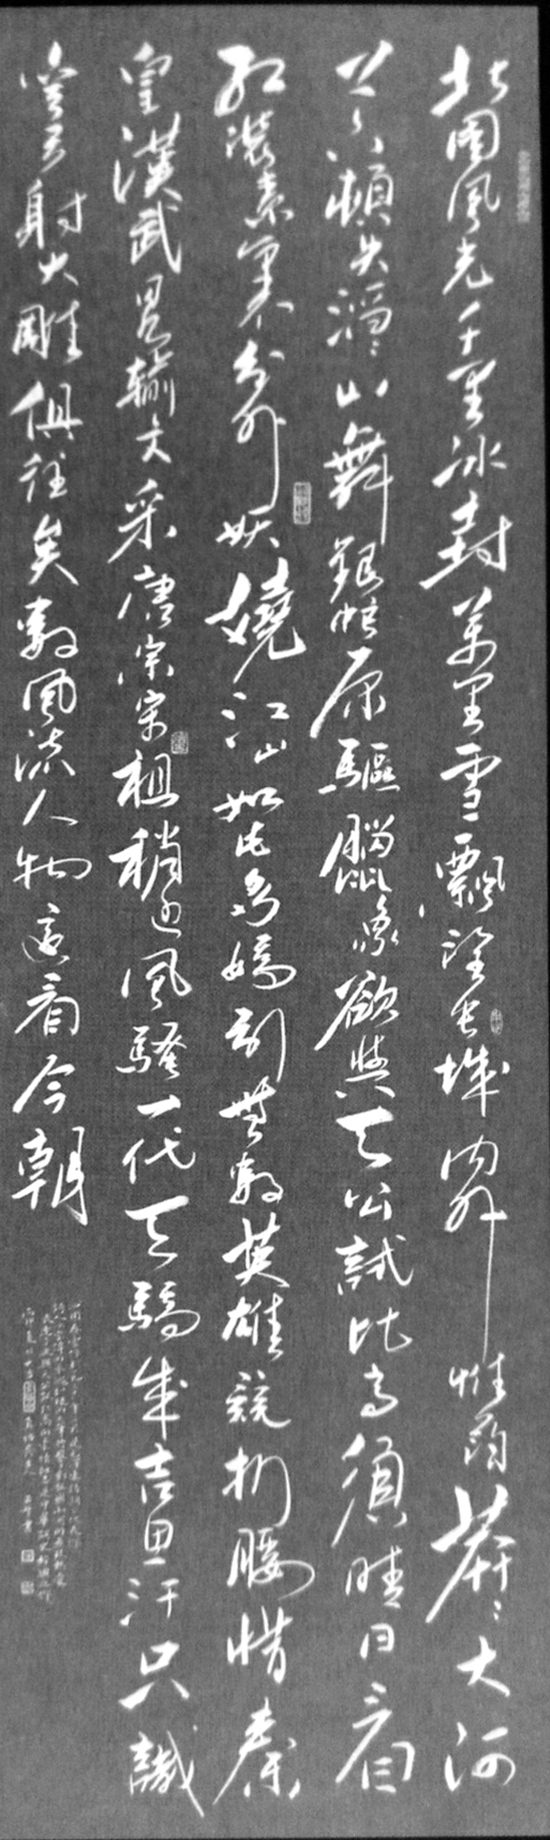 北國風光千里冰封萬里雪飄望長城內外惟餘莽〻大河
上下頓失滔〻山舞銀蛇原驅臘象欲與天公試比高須晴日看
紅裝素裹分外妖嬈江山如此多嬌引無數英雄競折腰惜秦
皇漢武略輸文采唐宗宋祖稍遜風騷一代天驕成吉思汗只識
彎弓射大雕俱往矣數風流人物還看今朝